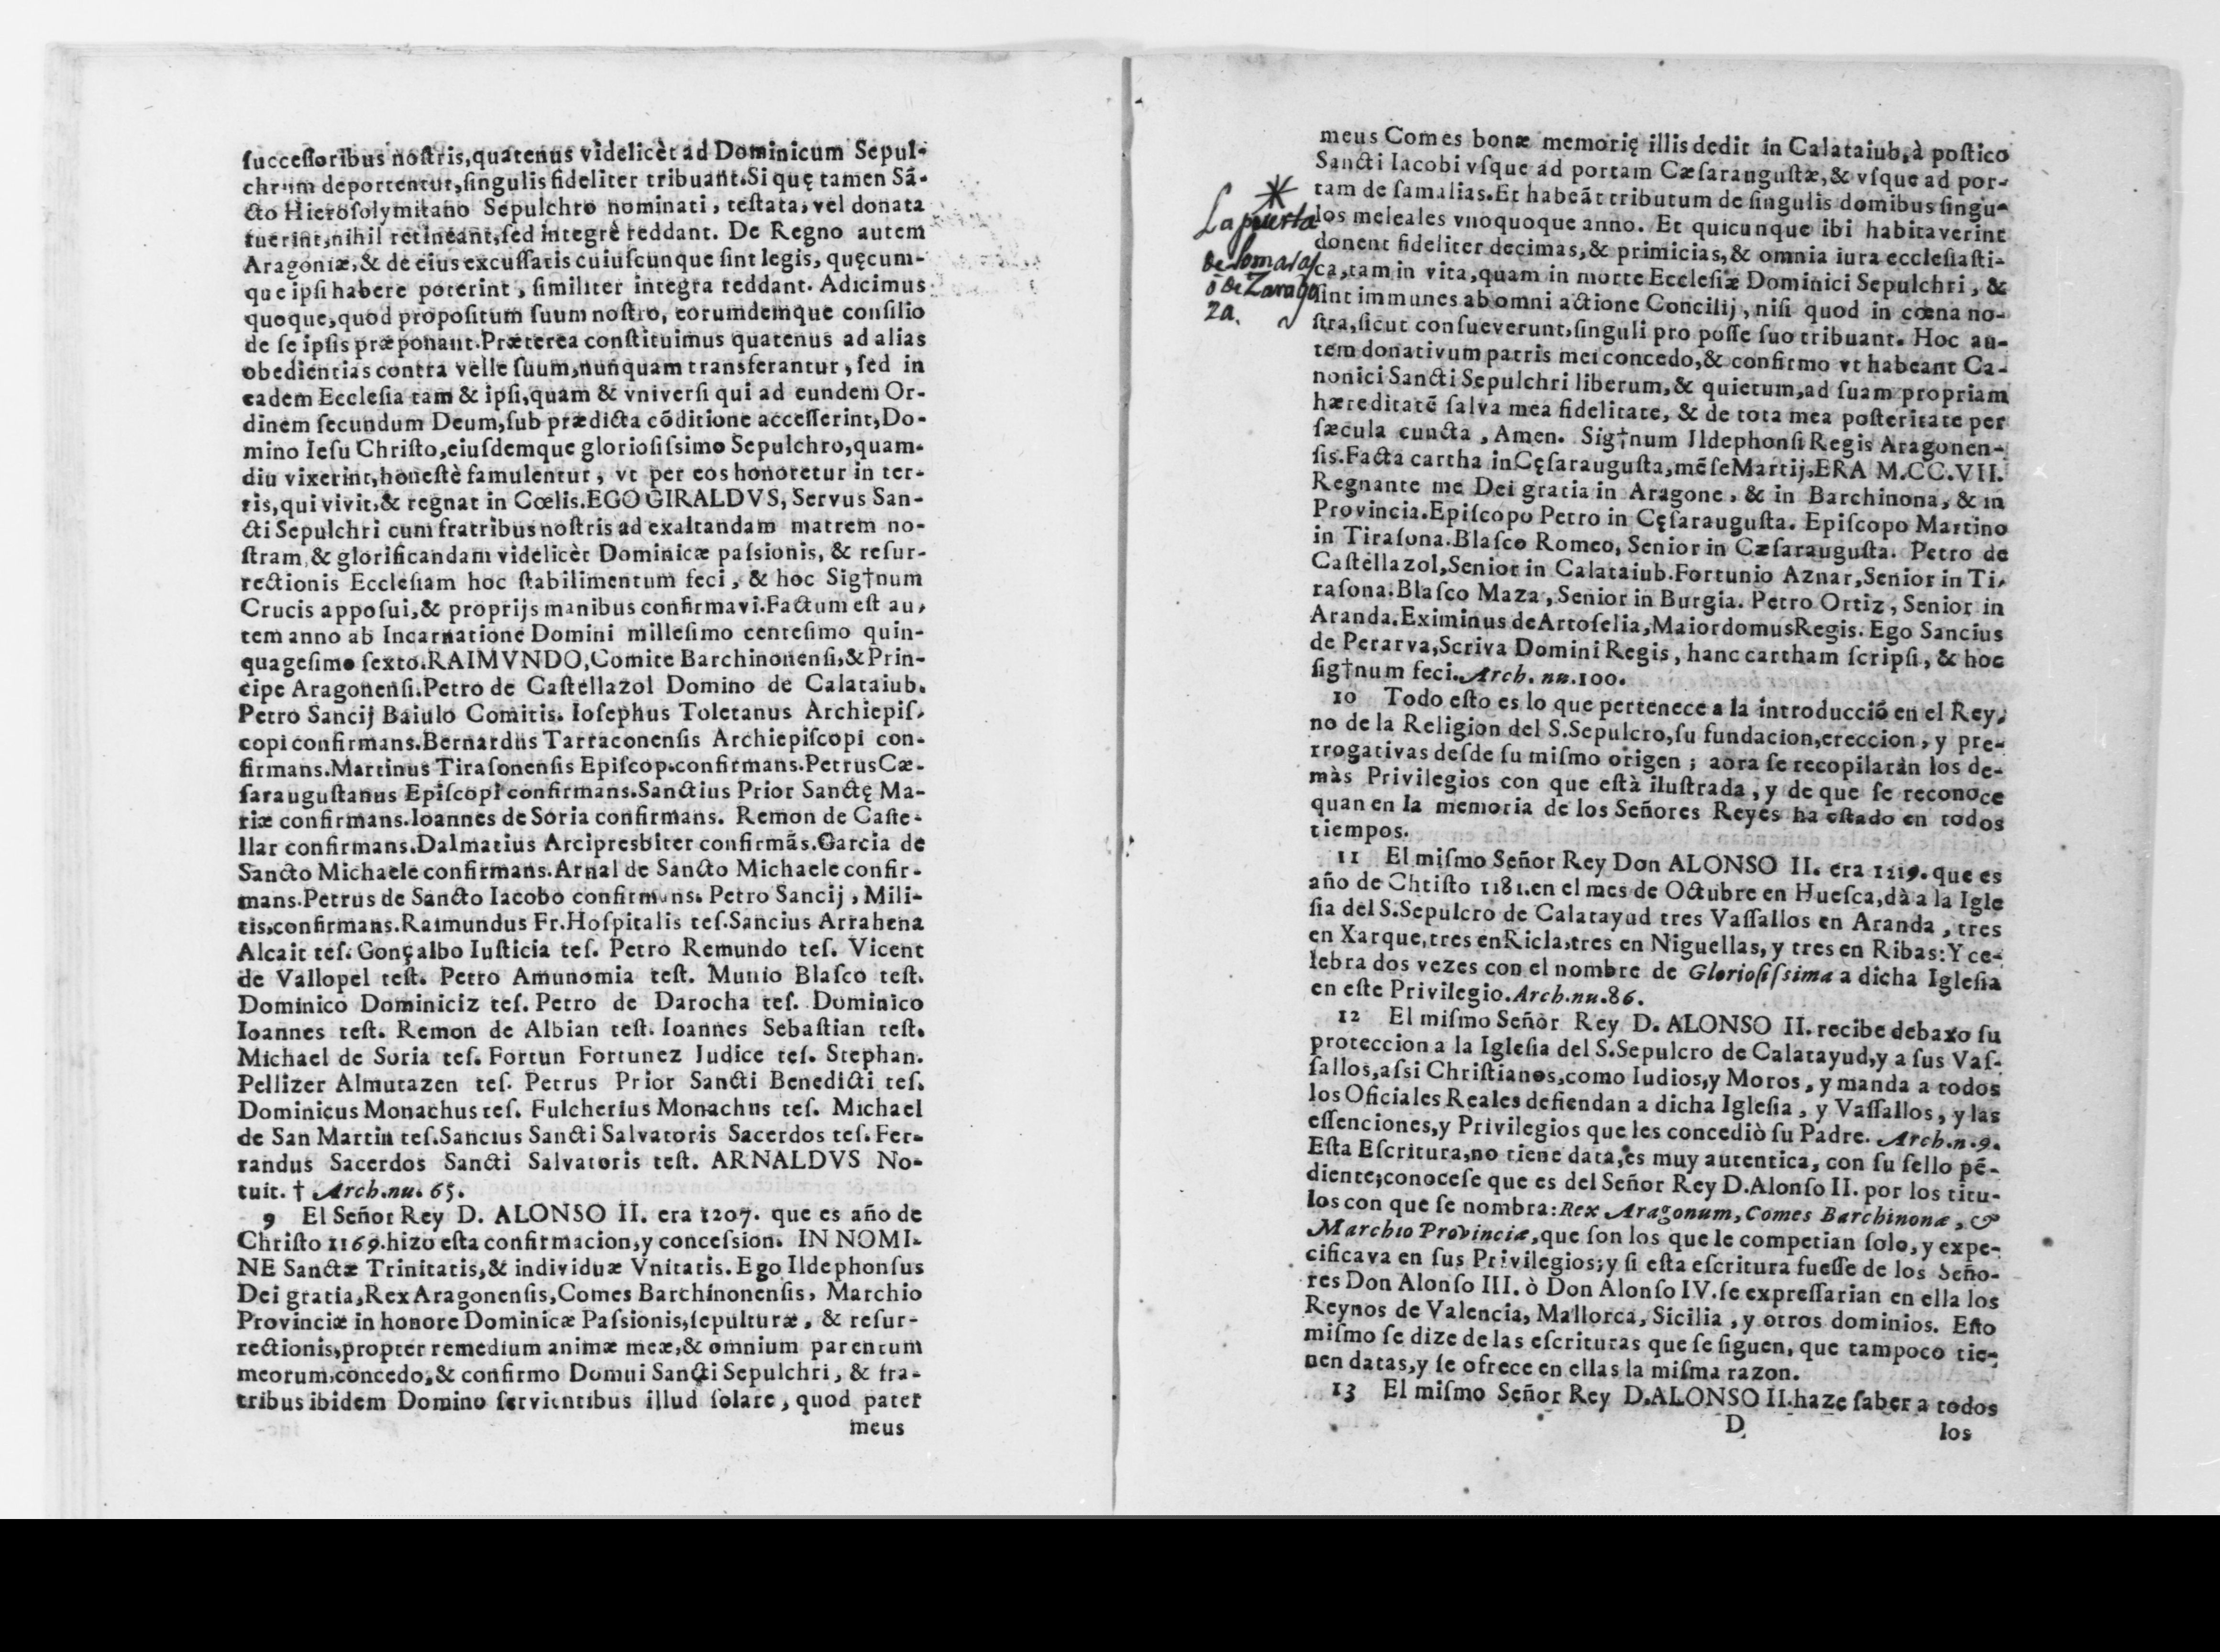 ſucceſſoribus noſtris,quatenus videlicèt ad Dominicum Sepul-
chrum deportentur,ſingulis fideliter tribuant.Si quę tamen Sā-
cto Hieroſolymitano Sepulchro nominati, teſtata, vel donata
fuerint,nihil retineant,ſed integrè reddant. De Regno autem
Aragoniæ,& de eius excuſſatis cuiuſcunque ſint legis, quęcum-
que ipſi habere poterint, ſimiliter integra reddant. Adicimus
quoque,quod propoſitum ſuum noſtro, eorumdemque conſilio
de ſe ipſis præponant.Præterea conſtituimus quatenus ad alias
obedientias contra velle ſuum,nunquam transferantur, ſed in
eadem Eccleſia tam & ipſi,quam & vniverſi qui ad eundem Or-
dinem ſecundum Deum,ſub prædicta cōditione acceſſerint,Do-
mino Ieſu Chriſto,eiuſdemque glorioſiſsimo Sepulchro,quam-
diu vixerint,honeſtè famulentur, vt per eos honoretur in ter-
ris,qui vivit,& regnat in Cœlis.EGO GIRALDVS, Servus San-
cti Sepulchri cum fratribus noſtris ad exaltandam matrem no-
ſtram,& glorificandam videlicèt Dominicæ paſsionis, & reſur-
rectionis Eccleſiam hoc ſtabilimentum feci, & hoc Sig†num
Crucis appoſui,& proprijs manibus confirmavi.Factum eſt au-
tem anno ab Incarnatione Domini milleſimo centeſimo quin-
quageſimo ſexto.RAIMVNDO,Comite Barchinonenſi,& Prin-
cipe Aragonenſi.Petro de Caſtellazol Domino de Calataiub.
Petro Sancij Baiulo Comitis. Ioſephus Toletanus Archiepiſ-
copi confirmans.Bernardus Tarraconenſis Archiepiſcopi con-
firmans.Martinus Tiraſonenſis Epiſcop.confirmans.Petrus Cæ-
ſarauguſtanus Epiſcopi confirmans.Sanctius Prior Sanctę Ma-
riæ confirmans.Ioannes de Soria confirmans. Remon de Caſte-
llar confirmans.Dalmatius Arcipresbiter confirmās.Garcia de
Sancto Michaele confirmans.Arnal de Sancto Michaele confir-
mans.Petrus de Sancto Iacobo confirmans. Petro Sancij, Mili-
tis,confirmans.Raimundus Fr.Hoſpitalis teſ.Sancius Arrahena
Alcait teſ. Gonçalbo Iuſticia teſ. Petro Remundo teſ. Vicent
de Vallopel teſt. Petro Amunomia teſt. Munio Blaſco teſt.
Dominico Dominiciz teſ. Petro de Darocha teſ. Dominico
Ioannes teſt. Remon de Albian teſt. Ioannes Sebaſtian teſt.
Michael de Soria teſ. Fortun Fortunez Judice teſ. Stephan.
Pellizer Almutazen teſ. Petrus Prior Sancti Benedicti teſ.
Dominicus Monachus teſ. Fulcherius Monachus teſ. Michael
de San Martin teſ.Sancius Sancti Salvatoris Sacerdos teſ.Fer-
randus Sacerdos Sancti Salvatoris teſt. ARNALDVS No-
tuit. † Arch.nu. 65.
9 El Señor Rey D. ALONSO II. era 1207. que es año de
Chriſto 1169.hizo eſta confirmacion,y conceſsion. IN NOMI-
NE Sanctæ Trinitatis,& individuæ Vnitatis.Ego Ildephonſus
Dei gratia,Rex Aragonenſis,Comes Barchinonenſis, Marchio
Provinciæ in honore Dominicæ Paſsionis,ſepulturæ, & reſur-
rectionis,propter remedium animæ meæ,& omnium parentum
meorum,concedo,& confirmo Domui Sancti Sepulchri, & fra-
tribus ibidem Domino ſervientibus illud ſolare, quod pater
meus
meus Comes bonæ memorię illis dedit in Calataiub,à poſtico
Sancti Iacobi vſque ad portam Cæſarauguſtæ,& vſque ad por-
tam de ſamalias.Et habeāt tributum de ſingulis domibus ſingu-
los meleales vnoquoque anno. Et quicunque ibi habitaverint
donent fideliter decimas,& primicias,& omnia iura eccleſiaſti-
ca,tam in vita,quam in morte Eccleſiæ Dominici Sepulchri, &
ſint immunes ab omni actione Concilij, niſi quod in cœna no-
ſtra,ſicut conſueverunt,ſinguli pro poſſe ſuo tribuant. Hoc au-
tem donativum patris mei concedo,& confirmo vt habeant Ca-
nonici Sancti Sepulchri liberum,& quietum,ad ſuam propriam
hæreditatē ſalva mea fidelitate, & de tota mea poſteritate per
ſæcula cuncta, Amen. Sig†num Ildephonſi Regis Aragonen-
ſis.Facta cartha in Cęſarauguſta,mēſe Martij,ERA M.CC.VII.
Regnante me Dei gratia in Aragone, & in Barchinona, & in
Provincia.Epiſcopo Petro in Cęſarauguſta. Epiſcopo Martino
in Tiraſona.Blaſco Romeo, Senior in Cæſarauguſta. Petro de
Caſtellazol,Senior in Calataiub.Fortunio Aznar,Senior in Ti-
raſona.Blaſco Maza, Senior in Burgia. Petro Ortiz, Senior in
Aranda.Eximinus de Artoſelia,Maiordomus Regis. Ego Sancius
de Perarva,Scriva Domini Regis, hanc cartham ſcripſi, & hoc
ſig†num feci. Arch. nu.100.
10 Todo eſto es lo que pertenece a la introducció en el Rey-
no de la Religion del S.Sepulcro,ſu fundacion,ereccion, y pre-
rrogativas deſde ſu miſmo origen; aora ſe recopilaràn los de-
màs Privilegios con que eſtà iluſtrada, y de que ſe reconoce
quan en la memoria de los Señores Reyes ha eſtado en todos
tiempos.
11 El miſmo Señor Rey Don ALONSO II. era 1219. que es
año de Chtiſto 1181.en el mes de Octubre en Hueſca,dà a la Igle
ſia del S.Sepulcro de Calatayud tres Vaſſallos en Aranda, tres
en Xarque,tres en Ricla,tres en Niguellas, y tres en Ribas: Y ce-
lebra dos vezes con el nombre de Glorioſiſsima a dicha Igleſia
en eſte Privilegio. Arch.nu.86.
12 El miſmo Señor Rey D. ALONSO II. recibe debaxo ſu
proteccion a la Igleſia del S.Sepulcro de Calatayud,y a ſus Vaſ-
ſallos,aſsi Chriſtianos,como Iudios,y Moros, y manda a todos
los Oficiales Reales defiendan a dicha Igleſia, y Vaſſallos, y las
eſſenciones,y Privilegios que les concediò ſu Padre. Arch.n.9.
Eſta Eſcritura,no tiene data,es muy autentica, con ſu ſello pē-
diente;conoceſe que es del Señor Rey D.Alonſo II. por los titu-
los con que ſe nombra: Rex Aragonum, Comes Barchinonæ, &
Marchio Provinciæ,que ſon los que le competian ſolo, y expe-
cificava en ſus Privilegios;y ſi eſta eſcritura fueſſe de los Seño-
res Don Alonſo III. ò Don Alonſo IV. ſe expreſſarian en ella los
Reynos de Valencia, Mallorca, Sicilia, y otros dominios. Eſto
miſmo ſe dize de las eſcrituras que ſe ſiguen, que tampoco tie-
nen datas,y ſe ofrece en ellas la miſma razon.
13 El miſmo Señor Rey D.ALONSO II.haze ſaber a todos
D
los
*
La puerta
de Somajas
ò de Zarago
za.